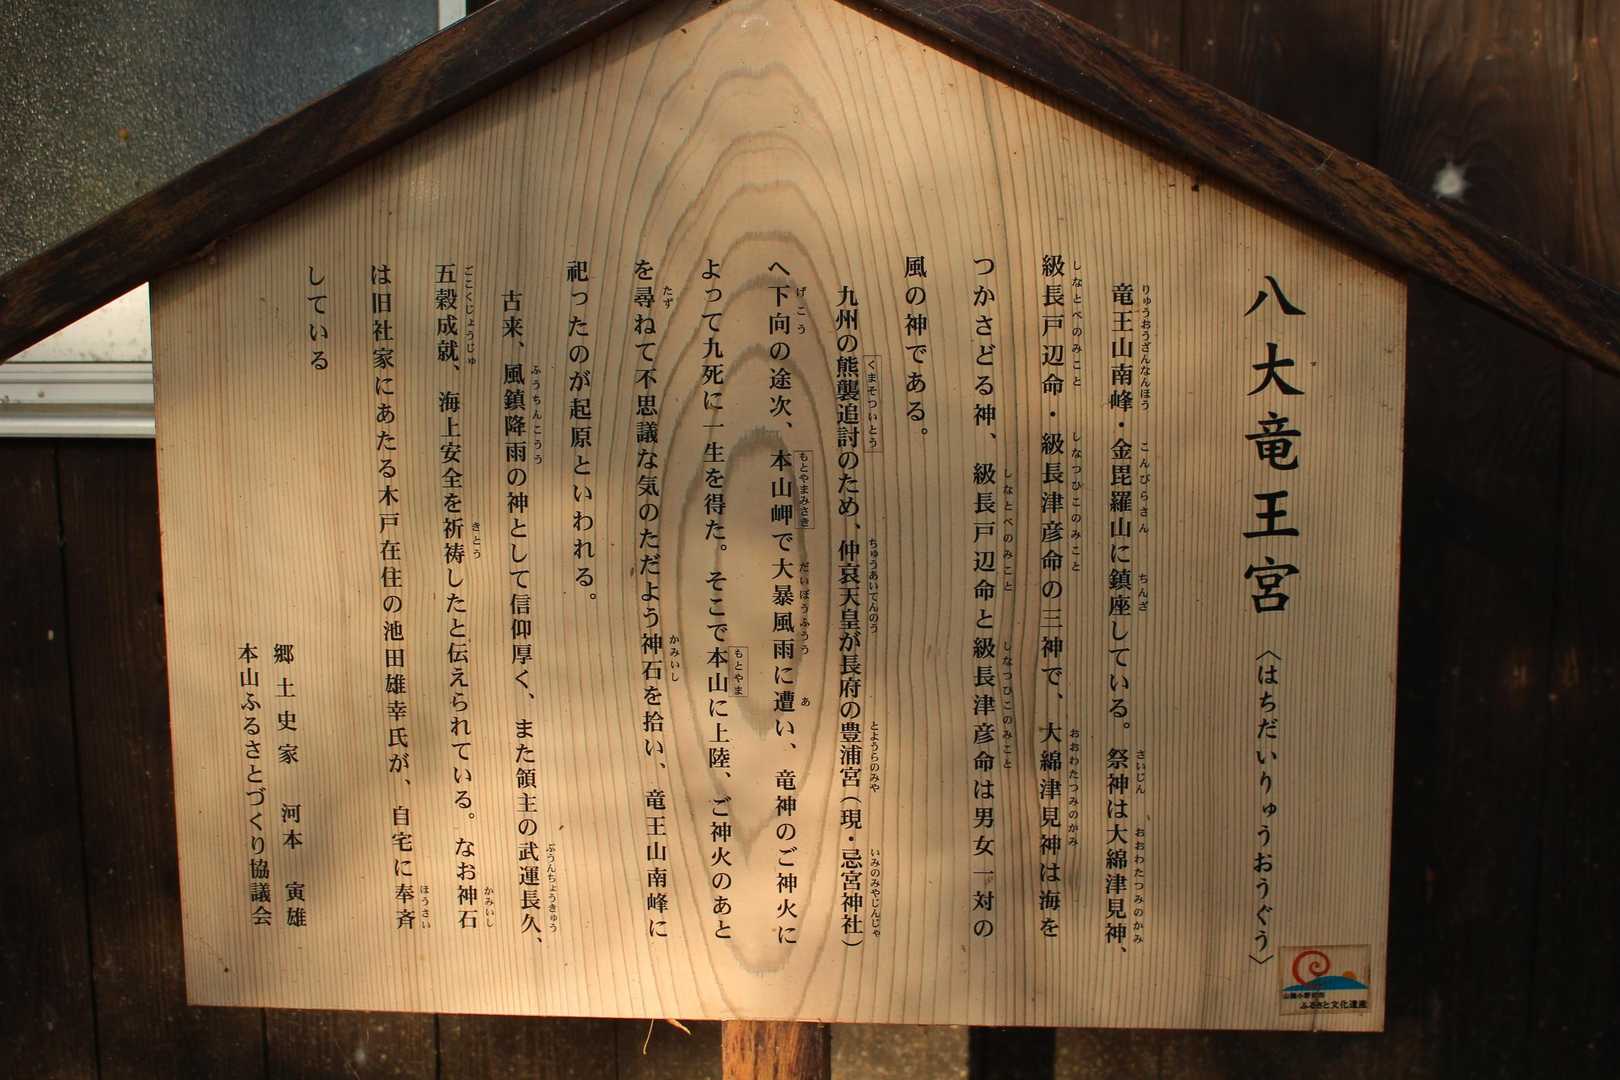 八大竜王宮〈はちだいりゅうおうぐう〉
竜王山南峰・金毘羅山に鎮座している。祭神は大綿津見神、
級長戸辺命・級長津彦命の三神で、大綿津見神は海を
つかさどる神、級長戸辺命と級長津彦命は男女一対の
風の神である。
九州の熊襲追討のため、仲哀天皇が長府の豊浦宮(現・忌宮神社)
へ下向の途次、本山岬で大暴風雨に遭い、竜神のご神火に
よって九死に一生を得た。そこで本山に上陸、ご神火のあと
を尋ねて不思議な気のただよう神石を拾い、竜王山南峰に
祀ったのが起原といわれる。
古来、風鎮降雨の神として信仰厚く、また領主の武運長久、
五穀成就、海上安全を祈祷したと伝えられている。なお神石
は旧社家にあたる木戸在住の池田雄幸氏が、自宅に奉斉
している
郷土史家 河本 寅雄
本山ふるさとづくり協議会
ふるさと文化遺産